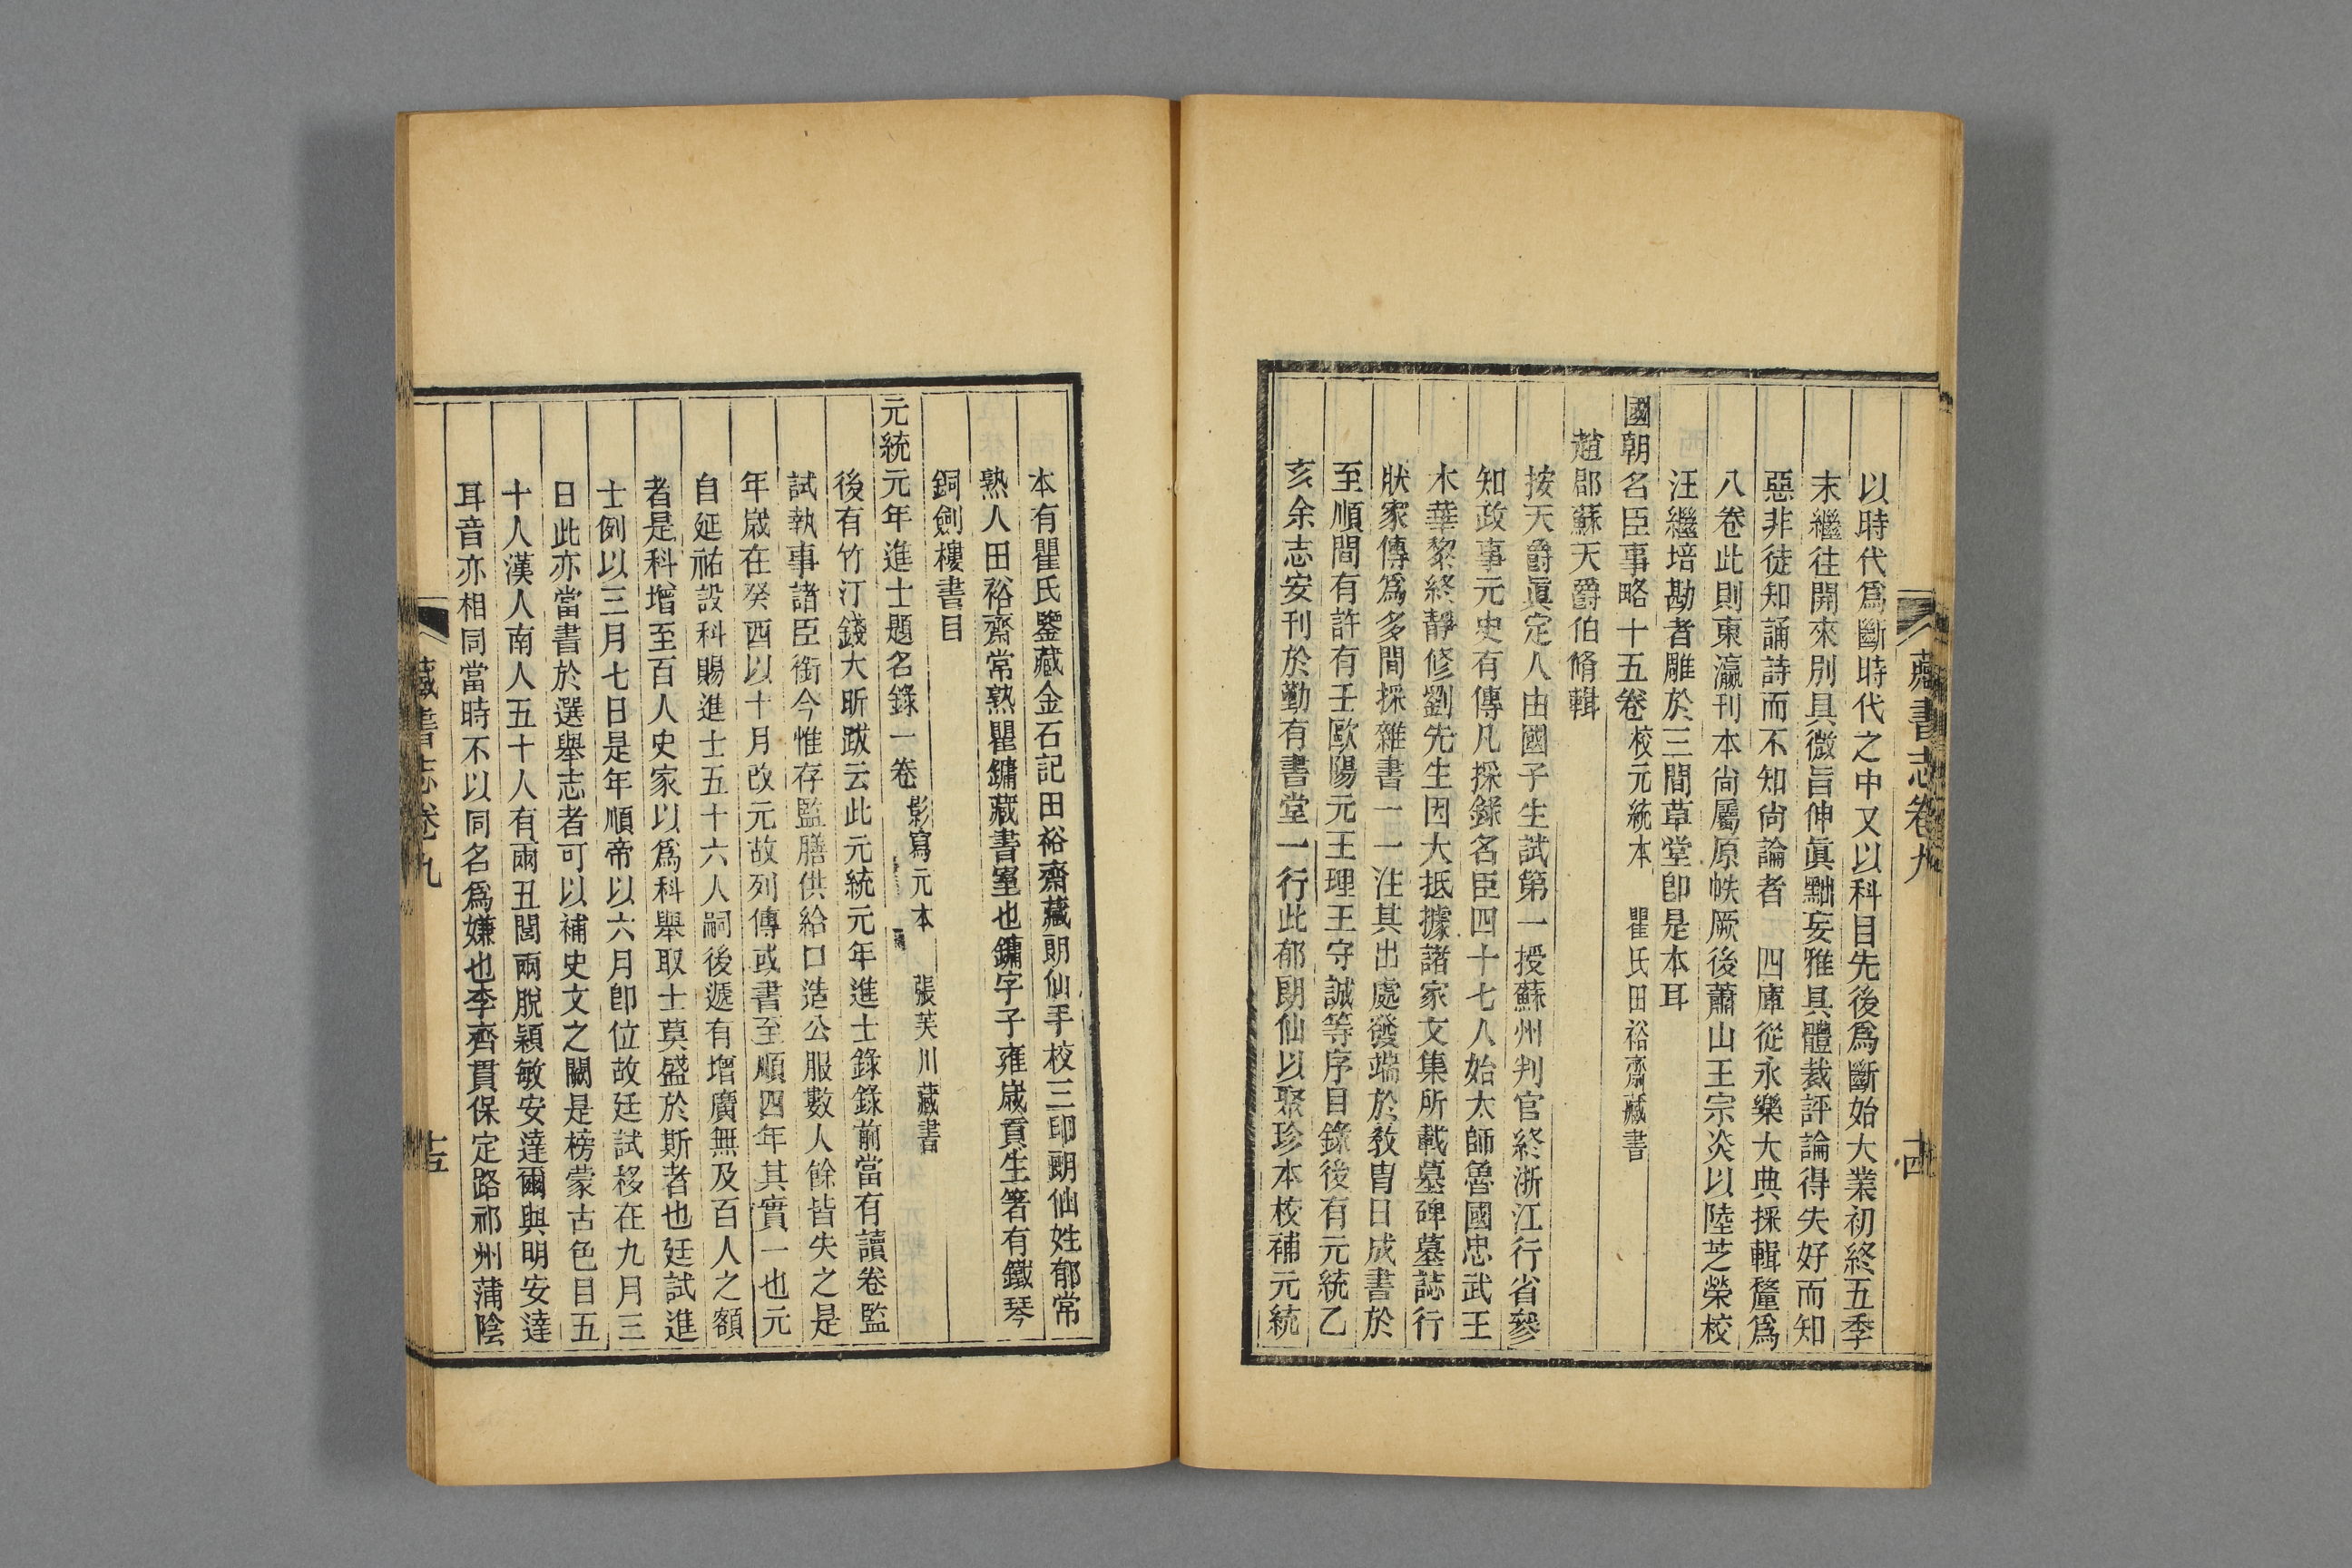 藏書志卷九
十四
以時代爲斷時代之中又以科目先後爲斷始大業初終五季
末繼往開來別具微旨伸眞黜妄雅具體裁評論得失好而知
惡非徒知誦詩而不知尙論者 四庫從永樂大典採輯釐爲
八卷此則東瀛刊本尙屬原帙厥後蕭山王宗炎以陸芝榮校
汪繼培勘者雕於三間草堂卽是本耳
國朝名臣事略十五卷 校元統本 瞿氏田裕齋藏書
趙郡蘇天爵伯脩輯
按天爵眞定人由國子生試第一授蘇州判官終浙江行省參
知政事元史有傳凡採錄名臣四十七人始太師魯國忠武王
木華黎終靜修劉先生因大抵據諸家文集所載墓碑墓誌行
狀家傳爲多間採雜書一一注其出處發端於敎冑日成書於
至順間有許有壬歐陽元王理王守誠等序目錄後有元統乙
亥余志安刊於勤有書堂一行此郁朗仙以聚珍本校補元統
本有瞿氏鑒藏金石記田裕齋藏朗仙手校三印朗仙姓郁常
熟人田裕齋常熟瞿鏞藏書室也鏞字子雍歲貢生箸有鐵琴
銅劍樓書目
元統元年進士題名錄一卷 影寫元本 張芙川藏書
後有竹汀錢大昕跋云此元統元年進士錄錄前當有讀卷監
試執事諸臣銜今惟存監膳供給口造公服數人餘皆失之是
年歲在癸酉以十月改元故列傳或書至順四年其實一也元
自延祐設科賜進士五十六人嗣後遞有增廣無及百人之額
者是科增至百人史家以爲科舉取士莫盛於斯者也廷試進
士例以三月七日是年順帝以六月卽位故廷試移在九月三
日此亦當書於選舉志者可以補史文之闕是榜蒙古色目五
十人漢人南人五十人有兩丑閭兩脫穎敏安達爾與明安達
耳音亦相同當時不以同名爲嫌也李齊貫保定路祁州蒲陰
藏書志卷九
十五